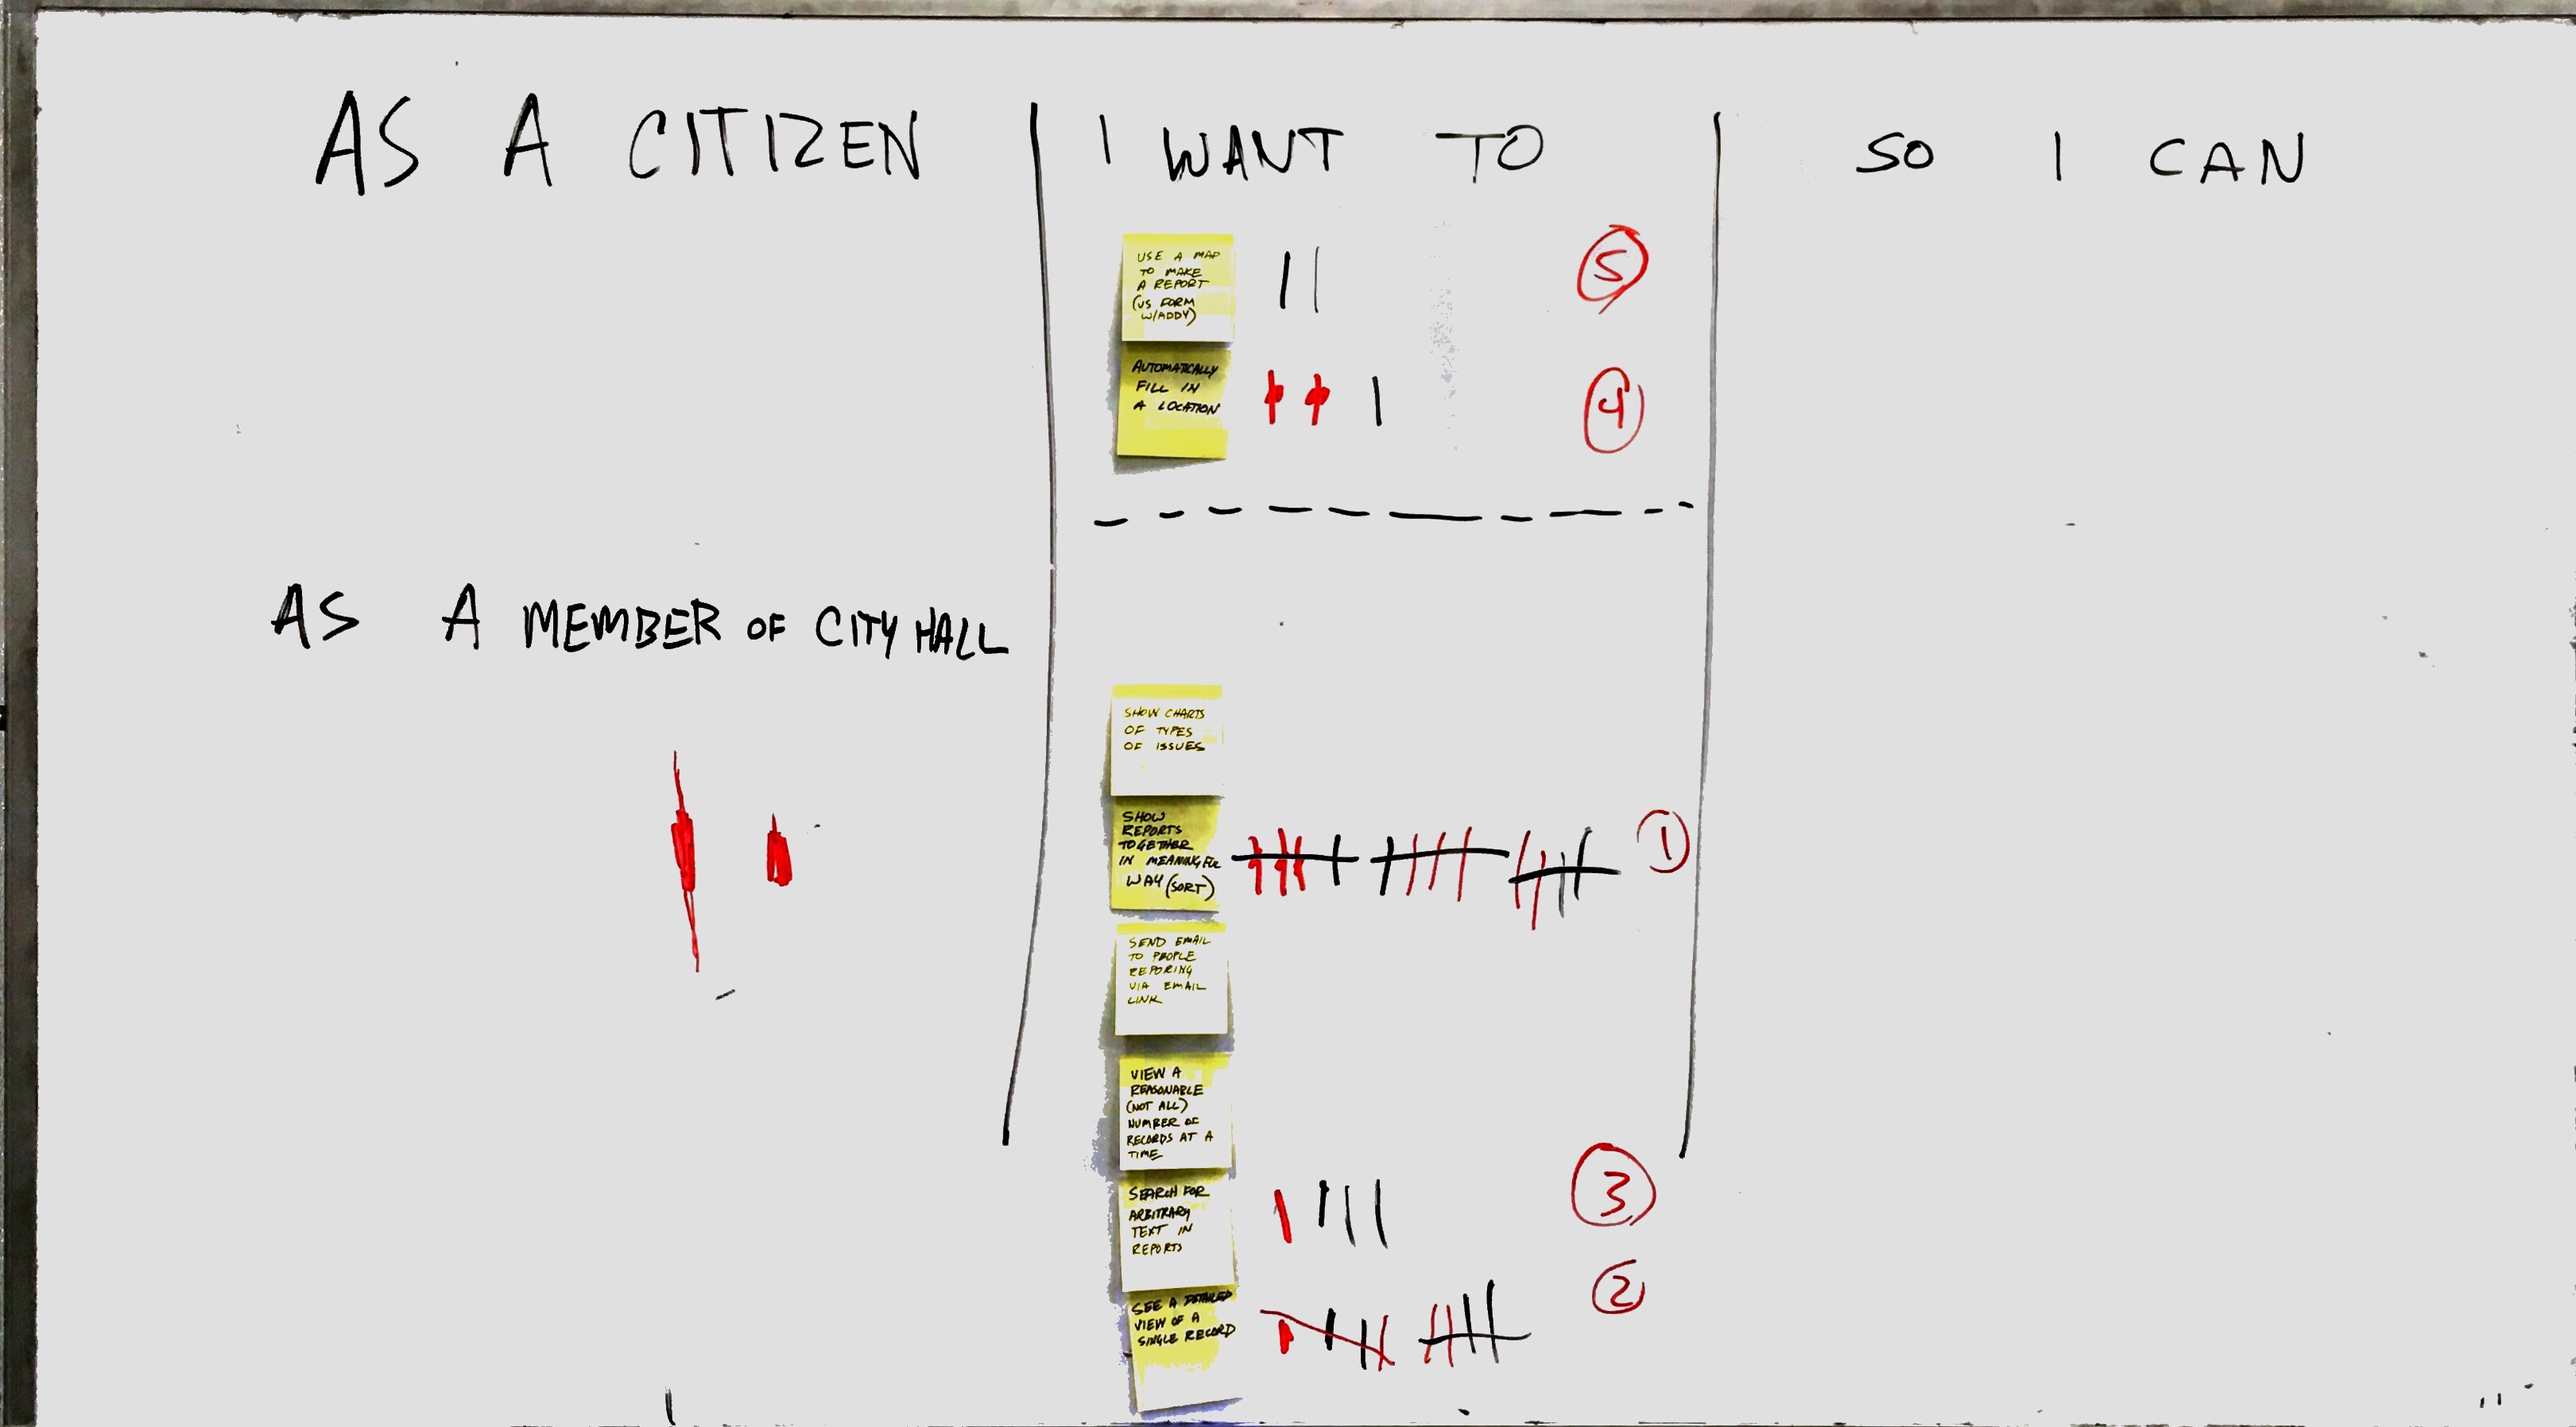 AS A CITIZEN
I WANT TO
SO I CAN
USE A MAP
TO MAKE
A REPORT
(VS FORM
W/ADDY)
5
AUTOMATICALLY
FILL IN
A LOCATION
4
AS A MEMBER OF CITY HALL
SHOW CHARTS
OF TYPES
OF ISSUES
SHOW
REPORTS
TOGETHER
IN MEANINGFUL
WAY (SORT)
1
SEND EMAIL
TO PEOPLE
REPORING
VIA EMAIL
LINK
VIEW A
REASONABLE
(NOT ALL)
NUMBER OF
RECORDS AT A
TIME
SEARCH FOR
ARBITRARY
TEXT IN
REPORTS
3
SEE A DETAILED
VIEW OF A
SINGLE RECORD
2